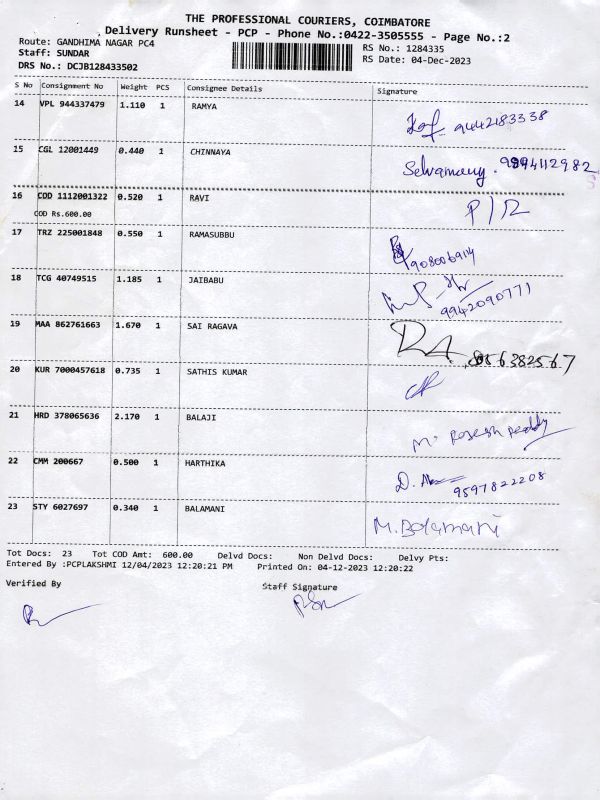 THE PROFESSIONAL COURIERS, COIMBATORE
Delivery Runsheet - PCP - Phone No.:0422-3505555 - Page No.:2
Route: GANDHIMA NAGAR PC4 RS No.: 1284335
Staff: SUNDAR RS Date: 04-Dec-2023
DRS No.: DCJB128433502
S No Consignment No Weight PCS Consignee Details Signature
14 VPL 944337479 1.110 1 RAMYA
9442183338
15 CGL 12001449 0.440 1 CHINNAYA
Selvamany. 9894112982
16 COD 1112001322 0.520 1 RAVI P/R
COD Rs.600.00
17 TRZ 225001848 0.550 1 RAMASUBBU
18 TCG 40749515 1.185 1 JAIBABU
9942090771
19 MAA 862761663 1.670 1 SAI RAGAVA
20 KUR 7000457618 0.735 1 SATHIS KUMAR
21 HRD 378065636 2.170 1 BALAJI
22 CMM 200667 0.500 1 HARTHIKA
9597822208
23 STY 6027697 0.340 1 BALAMANI
M. Balamani
Tot Docs: 23 Tot COD Amt: 600.00 Delvd Docs: Non Delvd Docs: Delvy Pts:
Entered By :PCPLAKSHMI 12/04/2023 12:20:21 PM Printed On: 04-12-2023 12:20:22
Verified By Staff Signature